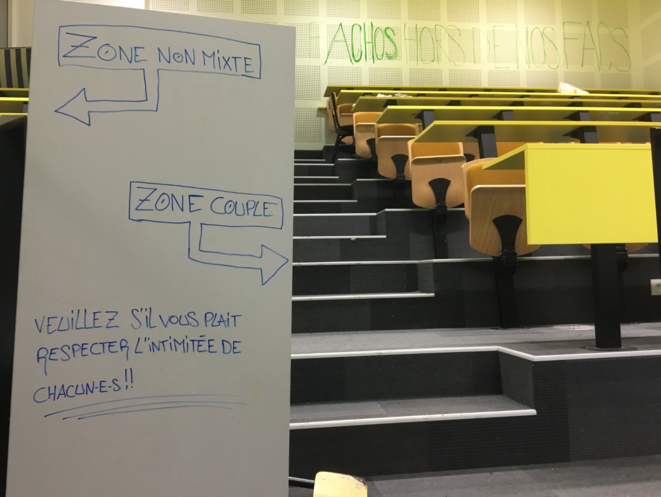 ZONE NON MIXTE
ZONE COUPLE
VEUILLEZ S'IL VOUS PLAIT
RESPECTER L'INTIMITÉE DE
CHACUN·E·S!!
FACHOS HORS DE NOS FACS